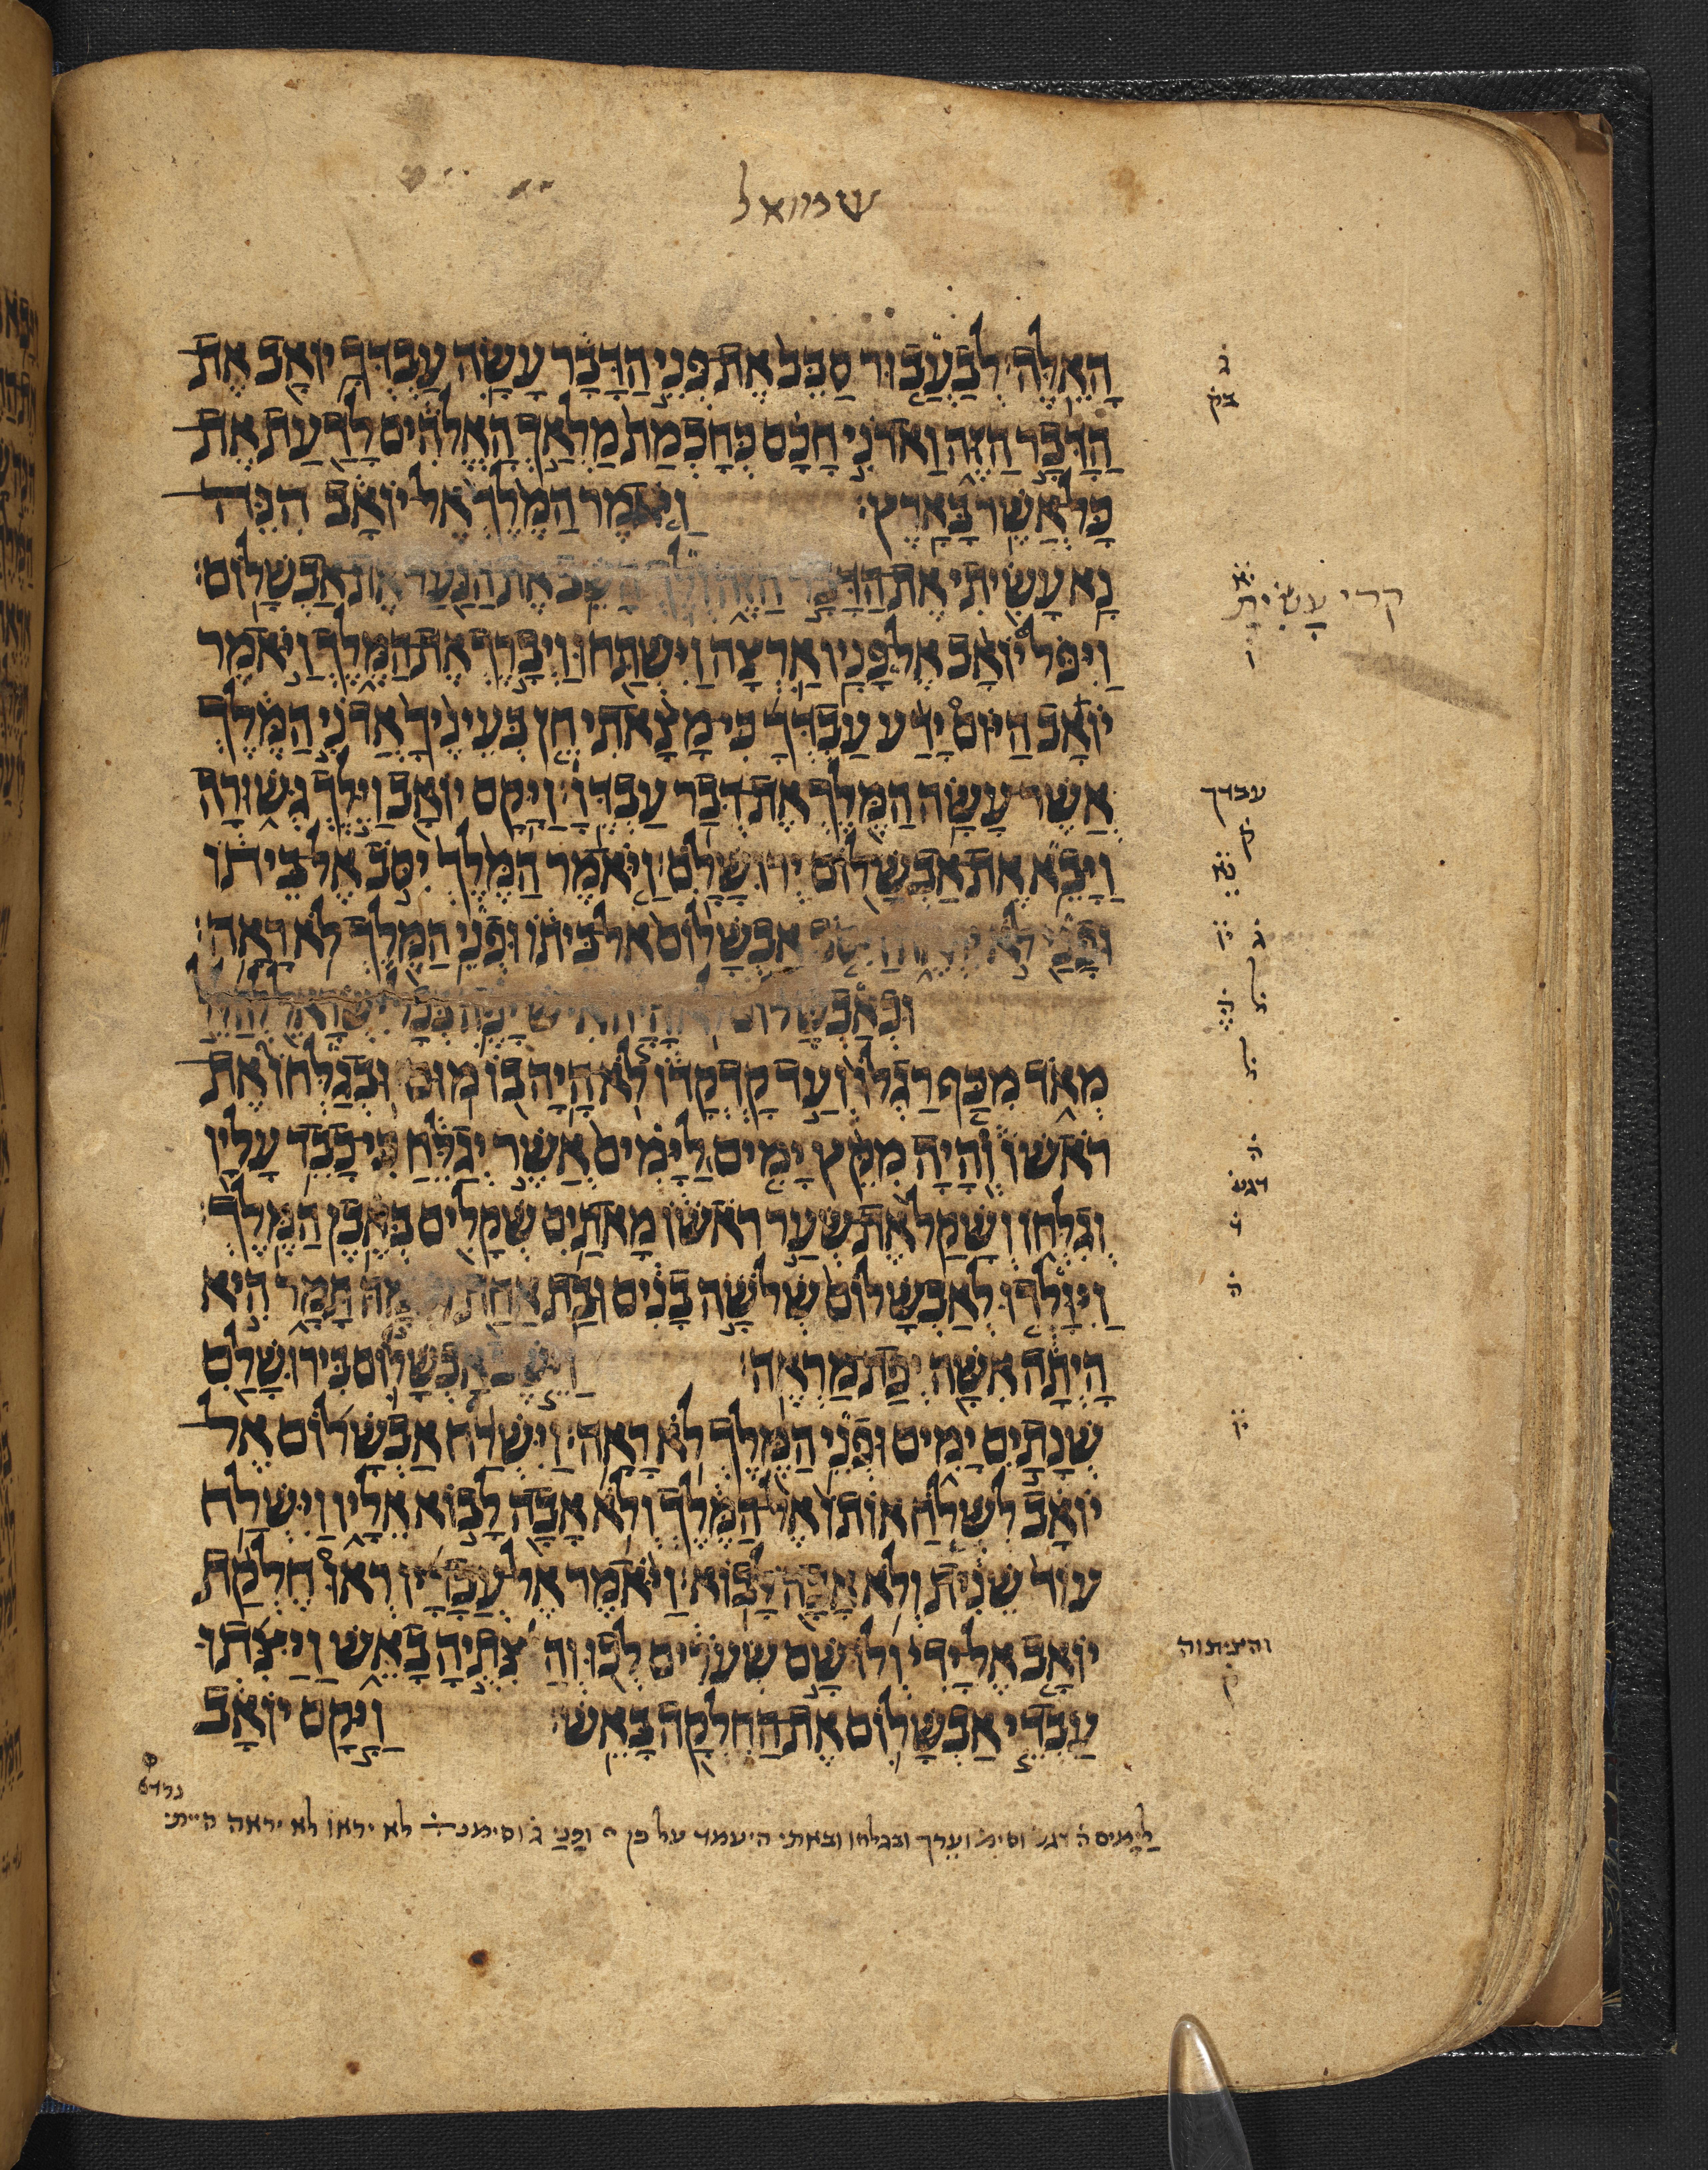 שמואל
הָאֵלֶּה׃ לְבַעֲבוּר סַבֵּב אֶת פְּנֵי הַדָּבָר עָשָׂה עַבְדְּךָ יוֹאָב אֶת
ג
בק
הַדָּבָר הַזֶּה וַאדֹנִי חָכָם כְּחָכְמַת מַלְאַךְ הָאֱלֹהִים לָדַעַת אֶת
כָּל אֲשֶׁר בָּאָרֶץ׃ וַיֹּאמֶר הַמֶּלֶךְ אֶל יוֹאָב הִנֵּה
נָא עָשִׂיתִי אֶת הַדָּבָר הַזֶּה וְלֵךְ הָשֵׁב אֶת הַנַּעַר אֶת אַבְשָׁלוֹם׃
יא
קרי עָשִׂיתָ
וַיִּפֹּל יוֹאָב אֶל פָּנָיו אַרְצָה וַיִּשְׁתַּחוּ וַיְבָרֶךְ אֶת הַמֶּלֶךְ וַיֹּאמֶר
ו
יוֹאָב הַיּוֹם יָדַע עַבְדְּךָ כִּי מָצָאתִי חֵן בְּעֵינֶיךָ אֲדֹנִי הַמֶּלֶךְ
אֲשֶׁר עָשָׂה הַמֶּלֶךְ אֶת דְּבַר עַבְדּוֹ׃ וַיָּקָם יוֹאָב וַיֵּלֶךְ גְּשׁוּרָה
עבדך
ק
וַיָּבֵא אֶת אַבְשָׁלוֹם יְרוּשָׁלִָם׃ וַיֹּאמֶר הַמֶּלֶךְ יִסֹּב אֶל בֵּיתוֹ
נא
וּפָנַי לֹא אַבְשָׁלוֹם אֶל בֵּיתוֹ וּפְנֵי הַמֶּלֶךְ לֹא רָאָה׃
ג יו
וּכְאַבְשָׁלוֹם לֹא הָיָה אִישׁ יָפֶה בְּכָל יִשְׂרָאֵל לְהַלֵּל
ל ה
מְאֹד מִכַּף רַגְלוֹ וְעַד קָדְקֳדוֹ לֹא הָיָה בוֹ מוּם׃ וּבְגַלְּחוֹ אֶת
ל
רֹאשׁוֹ וְהָיָה מִקֵּץ יָמִים לַיָּמִים אֲשֶׁר יְגַלֵּחַ כִּי כָבֵד עָלָיו
ה
דגש
וְגִלְּחוֹ וְשָׁקַל אֶת שְׂעַר רֹאשׁוֹ מָאתַיִם שְׁקָלִים בְּאֶבֶן הַמֶּלֶךְ׃
ו
וַיִּוָּלְדוּ לְאַבְשָׁלוֹם שְׁלֹשָׁה בָנִים וּבַת אַחַת וּשְׁמָהּ תָּמָר הִיא
ה
הָיְתָה אִשָּׁה יְפַת מַרְאֶה׃ וַיֵּשֶׁב אַבְשָׁלוֹם בִּירוּשָׁלִַם
שְׁנָתַיִם יָמִים וּפְנֵי הַמֶּלֶךְ לֹא רָאָה׃ וַיִּשְׁלַח אַבְשָׁלוֹם אֶל
יו
יוֹאָב לִשְׁלֹחַ אוֹתוֹ אֶל הַמֶּלֶךְ וְלֹא אָבָה לָבוֹא אֵלָיו וַיִּשְׁלַח
עוֹד שֵׁנִית וְלֹא אָבָה לָבוֹא׃ וַיֹּאמֶר אֶל עֲבָדָיו רְאוּ חֶלְקַת
יוֹאָב אֶל יָדִי וְלוֹ שָׁם שְׂעֹרִים לְכוּ וְהַצִּתֶיהָ בָאֵשׁ וַיַּצִּתוּ
והציתוה
ק
עַבְדֵי אַבְשָׁלוֹם אֶת הַחֶלְקָה בָּאֵשׁ׃ וַיָּקָם יוֹאָב
לַיָּמִים ה דגש וסימ וערך ובגלחו ובאתי היעמד על כן ופָנַי ג וסימנ לא יראו לא יראה הייתי